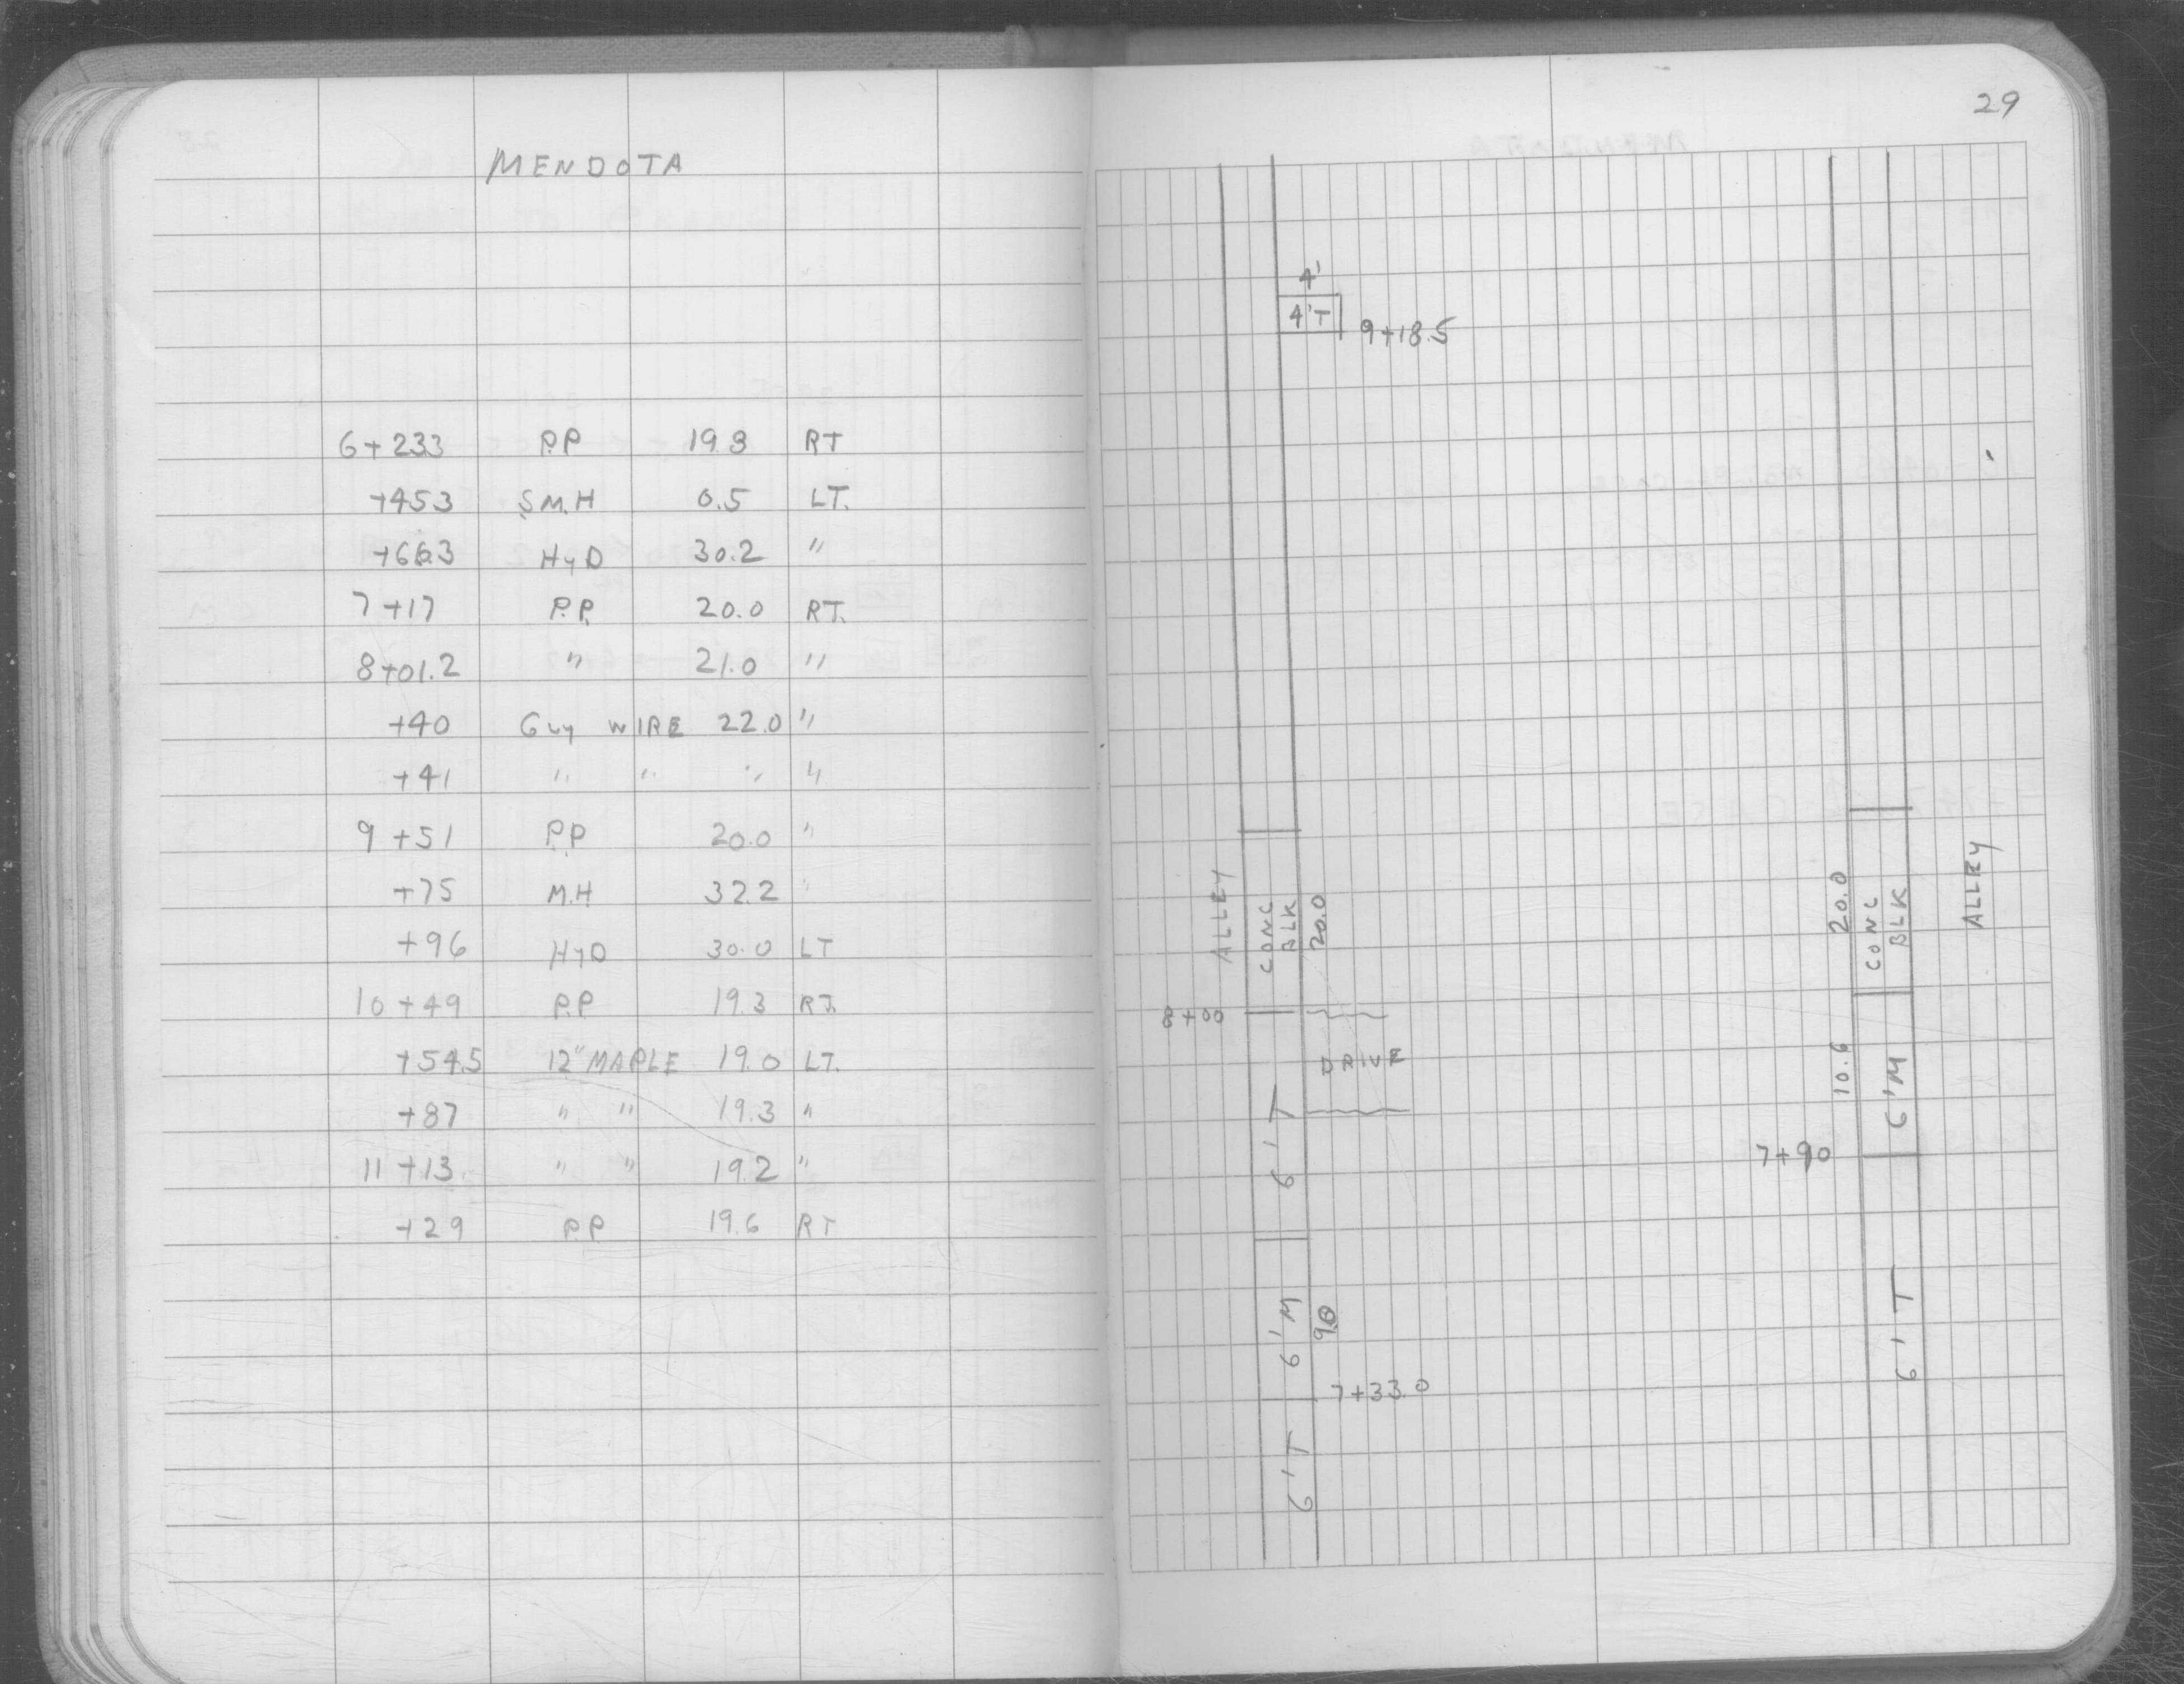 MENDOTA
6+23.3 P.P 19.3 RT
+45.3 S.M.H 0.5 LT.
+66.3 HyD 30.2 "
7+17 P.P. 20.0 RT.
8+01.2 " 21.0 "
+40 Guy WIRE 22.0 "
+41 " " " "
9+51 P.P 20.0 "
+75 M.H 32.2 "
+96 HyD 30.0 LT
10+49 P.P 19.3 RT.
+54.5 12" MAPLE 19.0 LT.
+87 " " 19.3 "
11+13 " " 19.2 "
+29 P.P 19.6 RT
29
4'
4'T
9+18.5
ALLEY
CONC
BLK
20.0
8+00
DRIVE
6'T
6'M
9.0
7+33.0
6'T
20.0
CONC
BLK
ALLEY
10.6
6'M
7+90
6'T